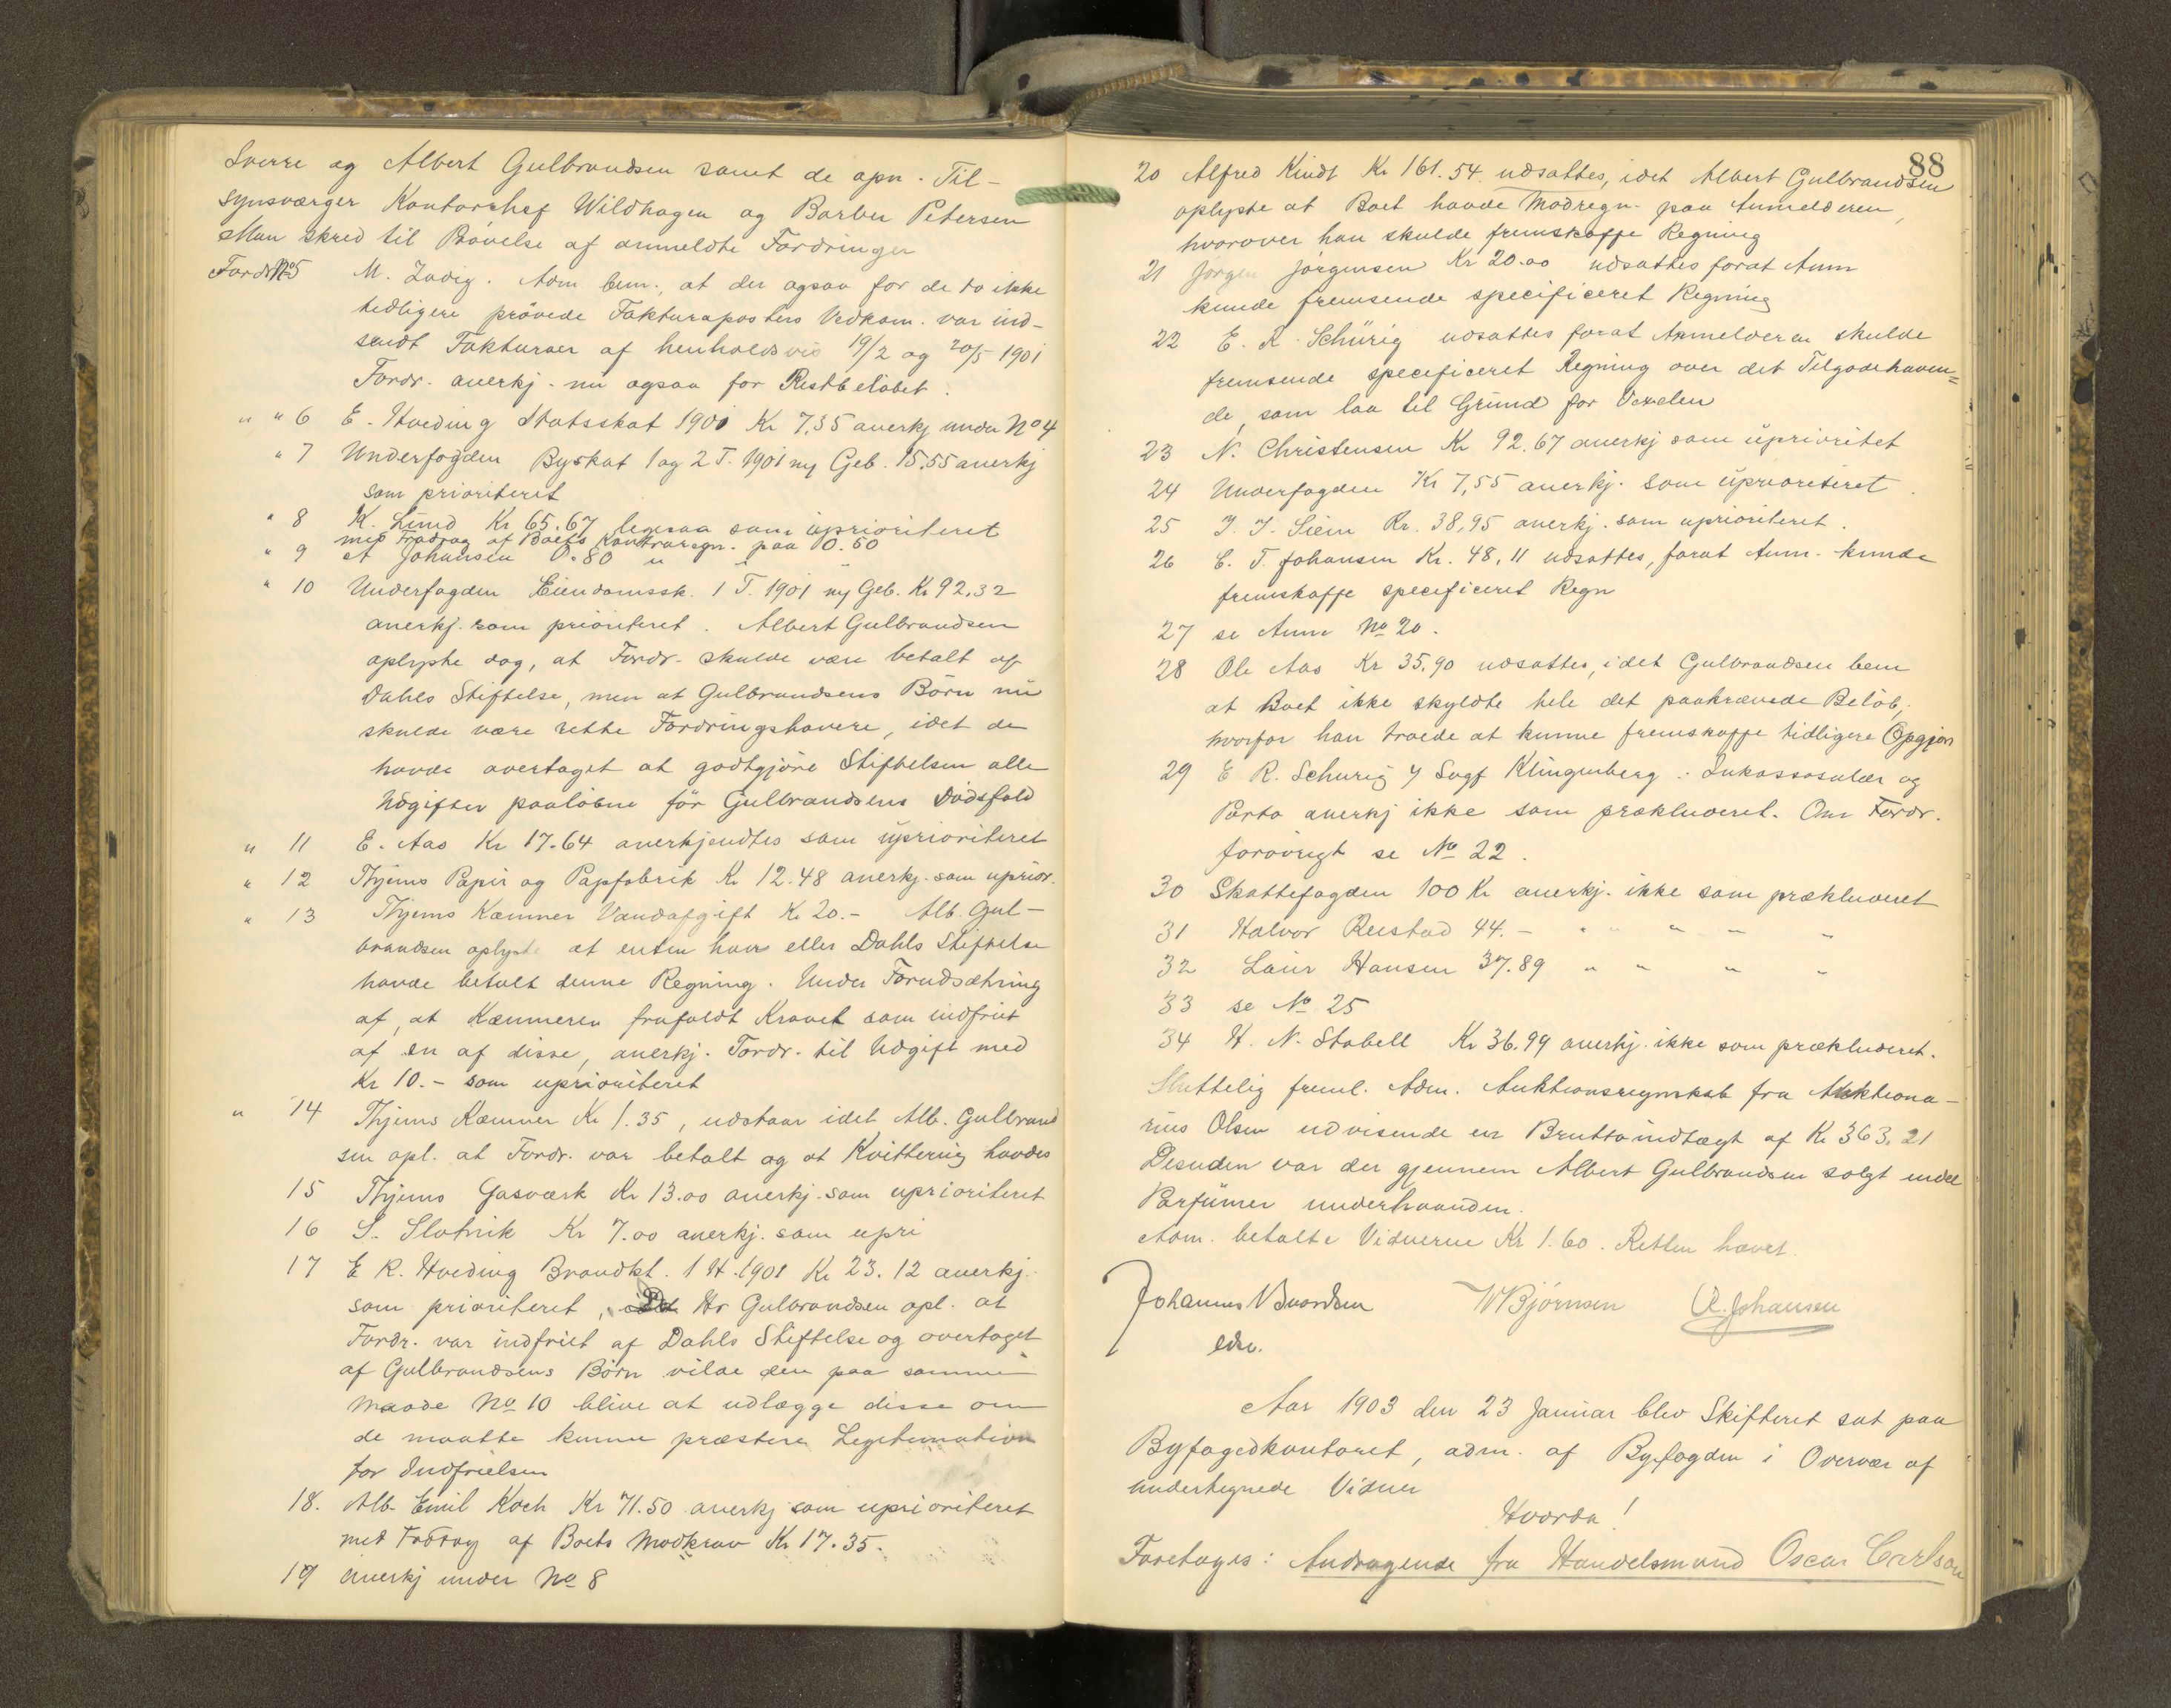 Sverre og Albert Gulbrandsen samt de opn. Til-
synsværger Kontorchef Wildhagen og Barber Petersen
Man skred til Prövelse af anmeldte Fordringer
Fordr No 5 M. Zadig. Adm bem., at der ogsaa for de to ikke
tidligere prövede Fakturaposters Vedkom. var ind-
sendt Fakturaer af henholdsvis 19/2 og 20/5 1901
Fordr. anerkj. nu ogsaa for Restbelöbet.
" " 6 E. Hveding Statsskat 1901 Kr 7,35 anerkj under No 4
" 7 Underfogden Byskat 1 og 2 T. 1901 ny Geb. 15.55 anerkj
som prioriteret
" 8 K. Lund Kr 65.67 ligesaa som uprioriteret
med Fradrag af Boets Kontraregn. paa 10.50
" 9 A Johansen 0.80 " "
" 10 Underfogden Eiendomssk. 1 T. 1901 ny Geb. Kr 92,32
anerkj. som prioriteret. Albert Gulbrandsen
oplyste dog, at Fordr. skulde være betalt af
Dahls Stiftelse, men at Gulbrandsens Börn nu
skulde være rette Fordringshavere, idet de
havde overtaget at godtgjöre Stiftelsen alle
Udgifter paalöbne för Gulbrandsens Dödsfald
" 11 E. Aas Kr 17.64 anerkjendtes som uprioriteret
" 12 Thjems Papir og Papfabrik Kr 12.48 anerkj. som uprior.
" 13 Thjems Kæmner Vandafgift Kr 20.- Alb. Gul-
brandsen oplyste at enten han eller Dahls Stiftelse
havde betalt denne Regning. Under Forudsætning
af, at Kæmneren frafaldt Kravet som indfriet
af en af disse, anerkj. Fordr. til Udgift med
Kr 10.- som uprioriteret
" 14 Thjems Kæmner Kr 1.35, udstaar idet Alb. Gulbrand
sen opl. at Fordr. var betalt og at Kvittering havdes
15 Thjems Gasværk Kr 13.00 anerkj. som uprioriteret
16 S. Slotnik Kr 7.00 anerkj. som upri
17 E R. Hveding Brandkt. 1 H. 1901 Kr 23.12 anerkj.
som prioriteret, Da Hr Gulbrandsen opl. at
Fordr. var indfriet af Dahls Stiftelse og overtaget
af Gulbrandsens Börn vilde den paa samme
Maade No 10 blive at udlægge disse om
de maatte kunne præstere Legitimation
for Indfrielsen
18. Alb Emil Koch Kr 71.50 anerkj som uprioriteret
med Fradrag af Boets Modkrav Kr 17.35.
19 anerkj under No 8
88
20 Alfred Kindt Kr 161.54 udsattes, idet Albert Gulbrandsen
oplyste at Boet havde Modregn. paa Anmelderen,
hvorover han skulde fremskaffe Regning
21 Jörgen Jörgensen Kr 20.00 udsattes forat Anm
kunde fremsende specificeret Regning
22 E. R. Schürig udsattes forat Anmelderen skulde
fremsende specificeret Regning over det Tilgodehaven=
de, som laa til Grund for Vexelen
23 N. Christensen Kr 92.67 anerkj som uprioritet
24 Underfogden Kr 7,55 anerkj. som uprioriteret.
25 J. J. Siem Kr. 38,95 anerkj. som uprioriteret.
26 C. T. Johansen Kr. 48,11 udsattes, forat Anm. kunde
fremskaffe specificeret Regn
27 se Anm No 20.
28 Ole Aas Kr 35,90 udsattes, idet Gulbrandsen bem
at Boet ikke skyldte hele det paakrævede Belöb,
hvorfor han troede at kunne fremskaffe tidligere Opgjör
29 E. R. Schurig v/ Sagf Klingenberg: Inkassosalær og
Porto anerkj ikke som prækluderet. Om Fordr.
forövrigt se No 22.
30 Skattefogden 100 Kr anerkj. ikke som prækluderet
31 Halvor Rustad 44.- " " " " "
32 Laur Hansen 37.89 " " " "
33 se No 25
34 H. N. Stabell Kr 36.99 anerkj. ikke som prækluderet.
Sluttelig freml. Adm. Auktionsregnskab fra Auktiona-
rius Olsen udvisende en Bruttoindtægt af Kr 363.21
Desuden var der gjennem Albert Gulbrandsen solgt endel
Parfümer underhaanden.
Adm. betalte Vidnerne Kr 1.60. Retten hævet.
Johannes Baardsen W Bjørnsen A. Johansen
edsv.
Aar 1903 den 23 Januar blev Skifteret sat paa
Byfogedkontoret, adm. af Byfogden i Overvær af
undertegnede Vidner
Hvorda!
Foretoges: Andragende fra Handelsmand Oscar Carlson